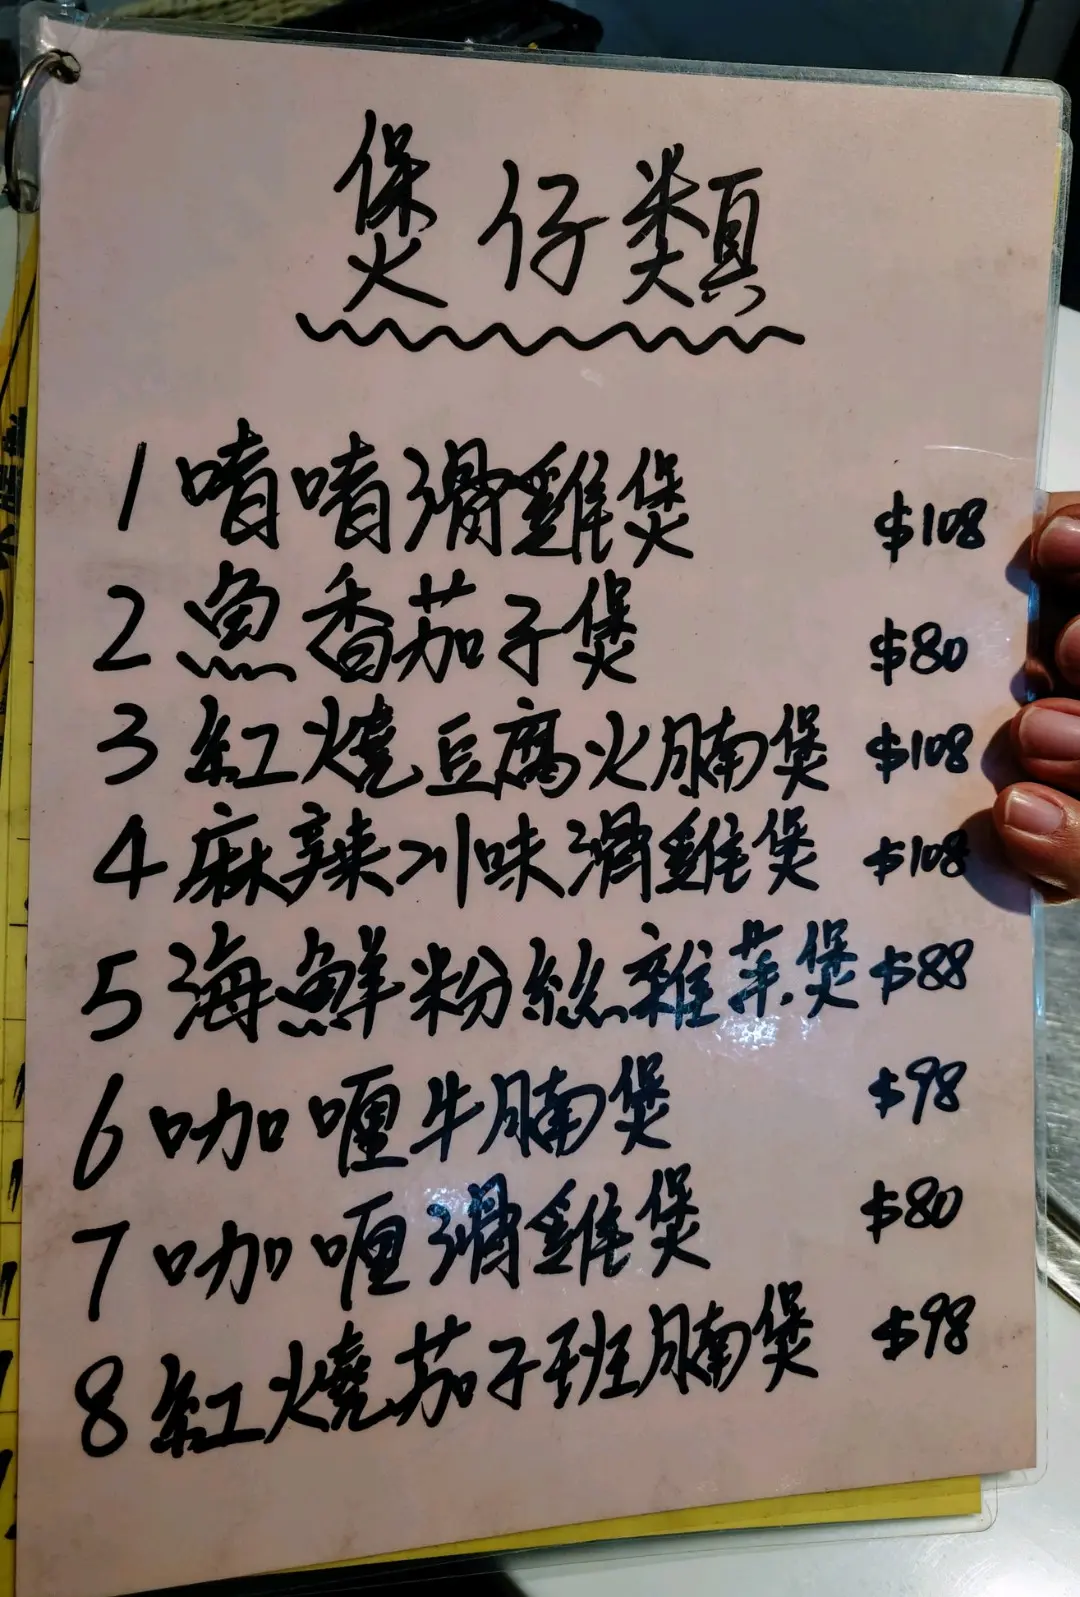 煲仔類
1 啫啫滑雞煲 $108
2 魚香茄子煲 $80
3 紅燒豆腐火腩煲 $108
4 麻辣川味滑雞煲 $108
5 海鮮粉絲雜菜煲 $88
6 咖喱牛腩煲 $98
7 咖喱滑雞煲 $80
8 紅燒茄子班腩煲 $98